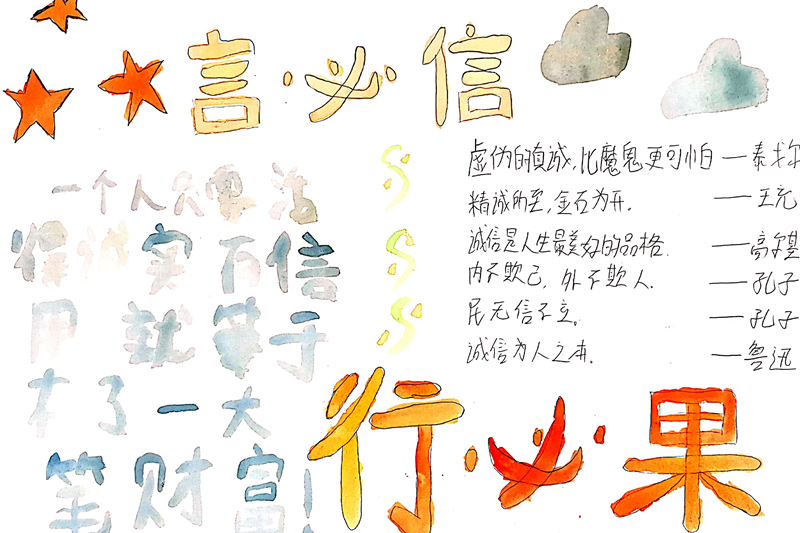 言必信
一个人只要活
得诚实有信
用就等于
有了一大
笔财富！
虚伪的真诚，比魔鬼更可怕 — 泰戈尔
精诚所至，金石为开。 — 王充
诚信是人生最美好的品格 — 高尔基
内不欺己，外不欺人. — 孔子
民无信不立。 — 孔子
诚信为人之本. — 鲁迅
行必果